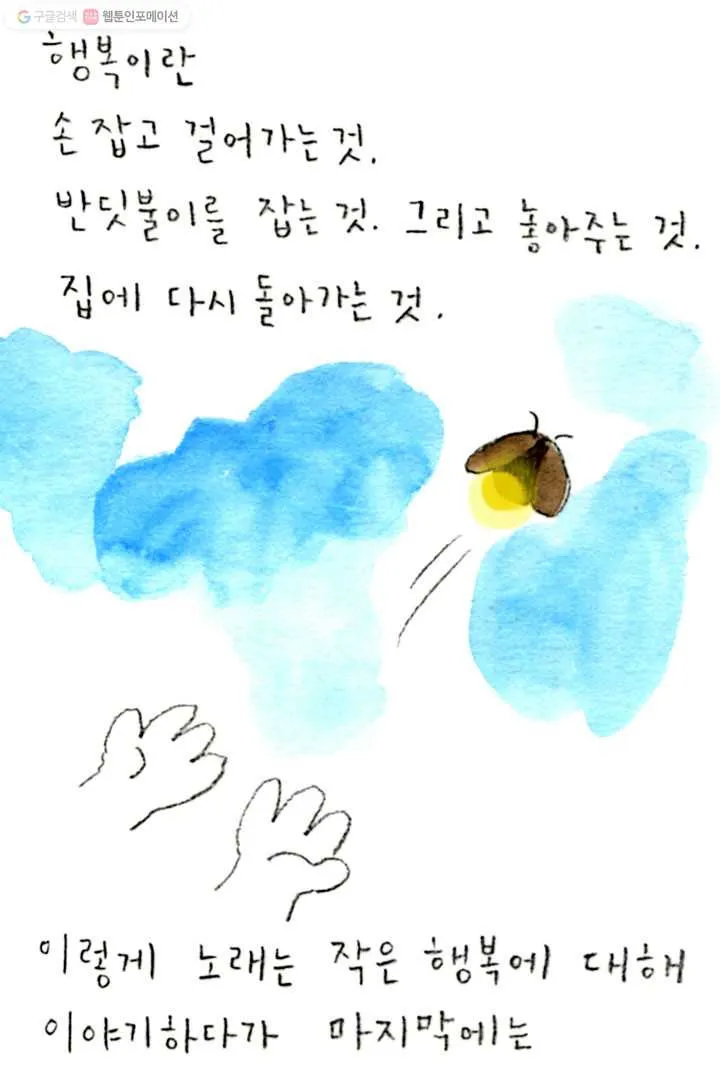 구글검색 웹툰인포메이션
행복이란
손 잡고 걸어가는 것.
반딧불이를 잡는 것. 그리고 놓아주는 것.
집에 다시 돌아가는 것.
이렇게 노래는 작은 행복에 대해
이야기하다가 마지막에는